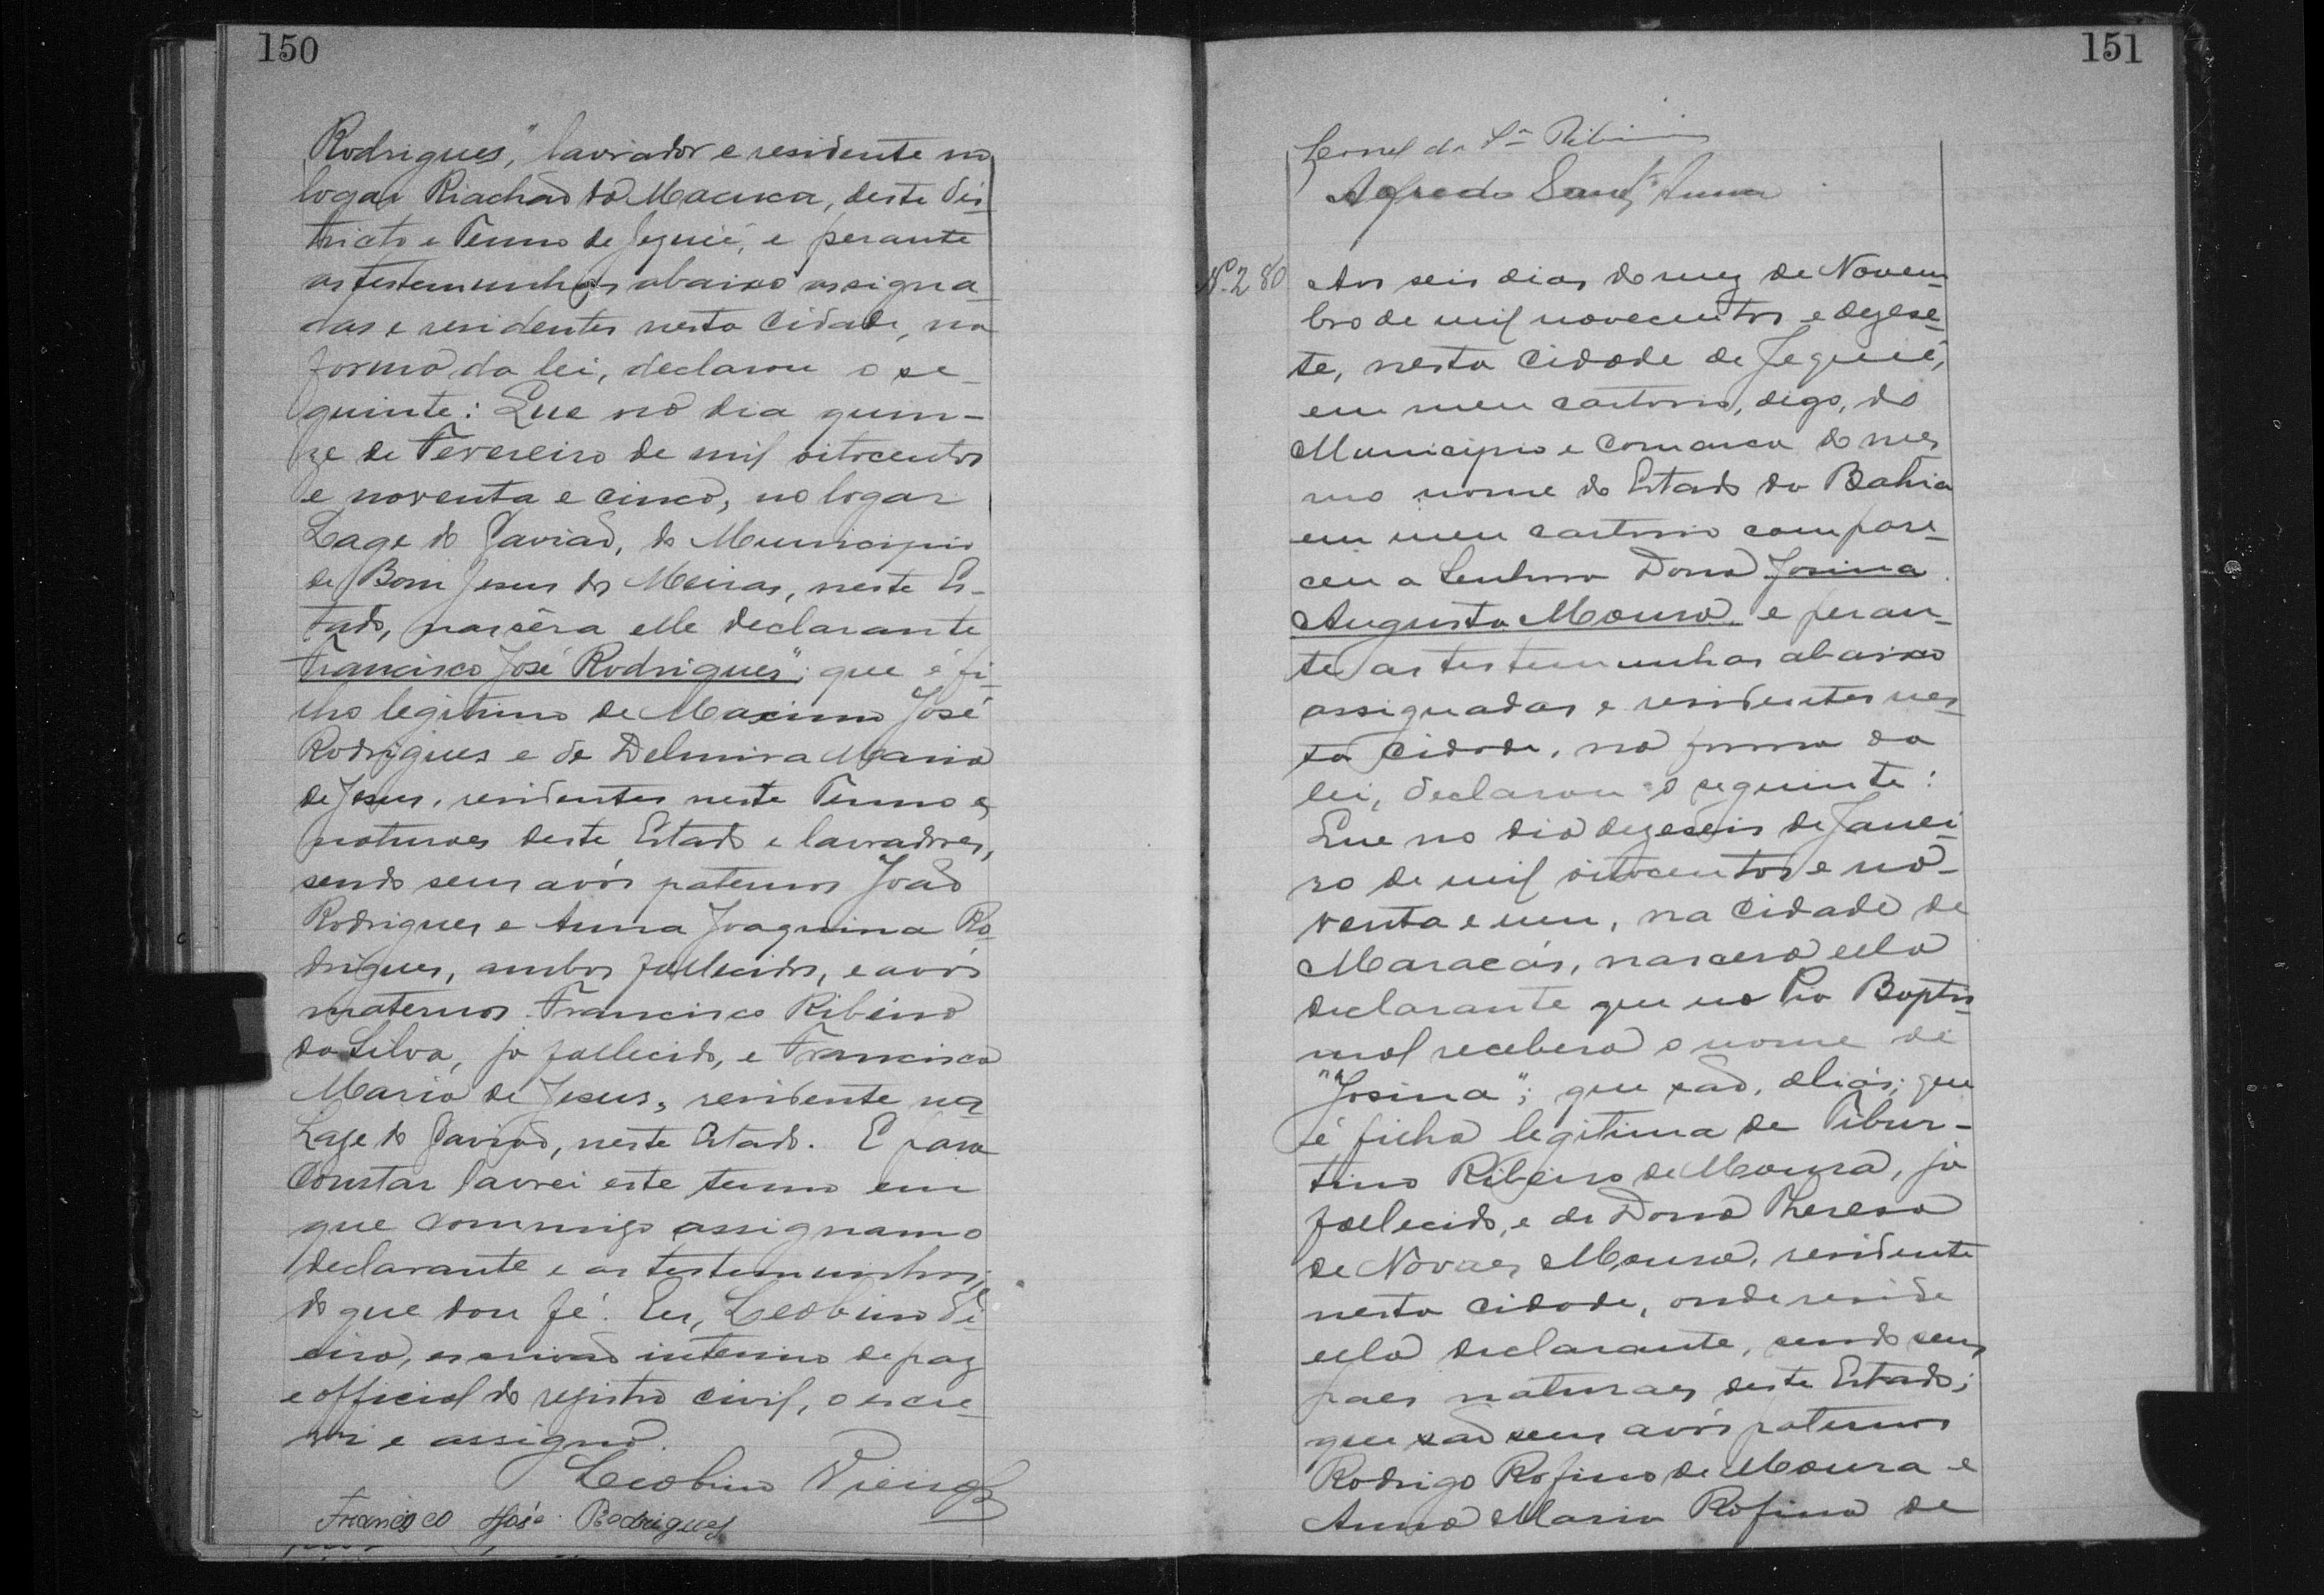 150
Rodrigues," lavrador e residente no
logar Riachão do Macuca, deste dis-
tricto e Termo de Jequié, e perante
as testemunhas abaixo assigna-
das e residentes nesta cidade, na
forma da lei, declarou o se-
guinte: Que no dia quin-
ze de Fevereiro de mil oitocentos
e noventa e cinco, no logar
Lage do Gavião, do Municipio
de Bom Jesus dos Meiras, neste Es-
tado, nascêra elle declarante
Francisco José Rodrigues"; que é fi-
lho legitimo de Maximo José
Rodrigues e de Delmira Maria
de Jesus, residentes neste Termo e
naturaes deste Estado e lavradores,
sendo seus avós paternos João
Rodrigues e Anna Joaquina Ro-
drigues, ambos fallecidos, e avós
maternos Francisco Ribeiro
da Silva, já fallecido, e Francisca
Maria de Jesus, residente na
Lage do Gavião, neste Estado. E para
constar lavrei este termo em
que commigo assignam o
declarante e as testemunhas,
do que dou fé. Eu, Leobino Vi-
eira, escrivão interino de paz
e official do registro civil, o escre-
vi e assigno.
Leobino Vieira
Francisco José Rodrigues
151
Leonel da Sª Ribeiro
Alfredo Sant'Anna
Nº 280
Aos seis dias do mez de Novem-
bro de mil novecentos e dezese-
te, nesta cidade de Jequié,
em meu cartorio, digo, do
Municipio e Comarca do mes
mo nome do Estado da Bahia
em meu cartorio compare-
ceu a Senhora Dona Josina
Augusta Moura e peran-
te as testemunhas abaixo
assignadas e residentes nes-
ta cidade, na forma da
lei, declarou o seguinte:
Que no dia dezeseis de Janei-
ro de mil oitocentos e no-
venta e um, na cidade de
Maracás, nascera ella
declarante que na Pia Baptis-
mal recebera o nome de
"Josina"; que são, aliás, que
é filha legitima de Tibur-
tino Ribeiro de Moura, já
fallecido, e de Dona Theresa
de Novaes Moura, residente
nesta cidade, onde reside
ella declarante, sendo seus
paes naturaes deste Estado;
que são seus avós paternos
Rodrigo Rofino de Moura e
Anna Maria Rofina de